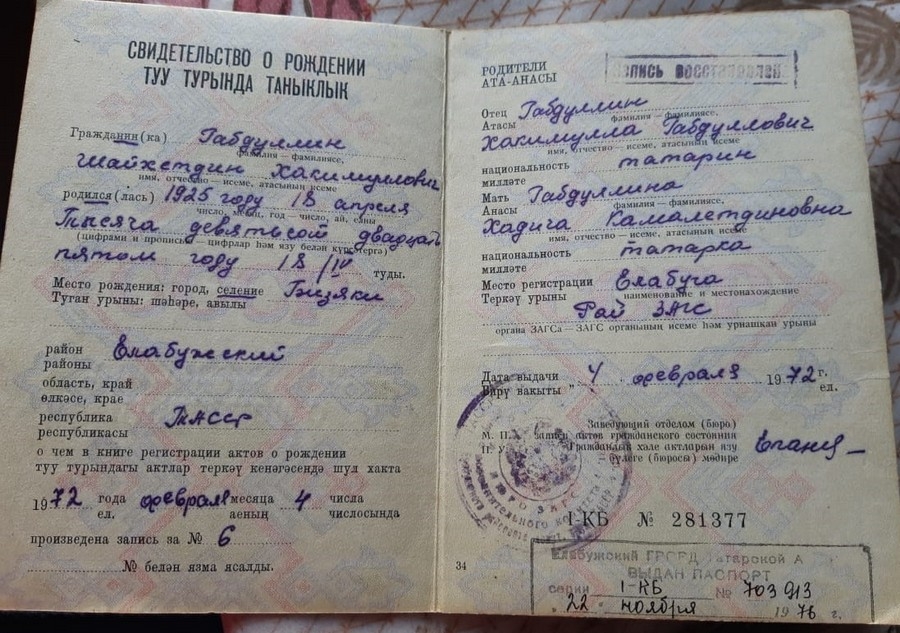 СВИДЕТЕЛЬСТВО О РОЖДЕНИИ
ТУУ ТУРЫНДА ТАНЫКЛЫК
Гражданин(ка) Габдуллин
фамилия — фамилиясе,
Шайхетдин Хакимуллович
имя, отчество — исеме, атасының исеме
родился(лась) 1925 году 18 апреля
число, месяц, год — число, ай, елы
Тысяча девятьсот двадцать
(цифрами и прописью — цифрлар һәм язу белән күрсәтергә)
пятом году 18/IV туды.
Место рождения: город, селение Бизяки
Туган урыны: шәһәре, авылы
район Елабужский
районы
область, край
өлкәсе, крае
республика ТАССР
республикасы
о чем в книге регистрации актов о рождении
туу турындагы актлар теркәү кенәгәсендә шул хакта
1972 года февраля месяца 4 числа
ел. аеның числосында
произведена запись за № 6
№ белән язма ясалды.
РОДИТЕЛИ
АТА-АНАСЫ
Запись восстановлена
Отец Габдуллин
Атасы фамилия — фамилиясе,
Хакимулла Габдуллович
имя, отчество — исеме, атасының исеме
национальность татарин
милләте
Мать Габдуллина
Анасы фамилия — фамилиясе,
Хадича Камалетдиновна
имя, отчество — исеме, атасының исеме
национальность татарка
милләте
Место регистрации Елабуга
Теркәү урыны наименование и местонахождение
Рай ЗАГС
органа ЗАГСа — ЗАГС органының исеме һәм урнашкан урыны
Дата выдачи " 4 " февраля 1972 г.
Бирү вакыты " ел.
Заведующий отделом (бюро)
М. П. записи актов гражданского состояния
П. У. Гражданлык хәле актларын язу
бүлеге (бюросы) мөдире
I-КБ № 281377
34
Елабужский ГРОВД Татарской А
ВЫДАН ПАСПОРТ
серии I-КБ № 703913
"22" ноября 1976 г.